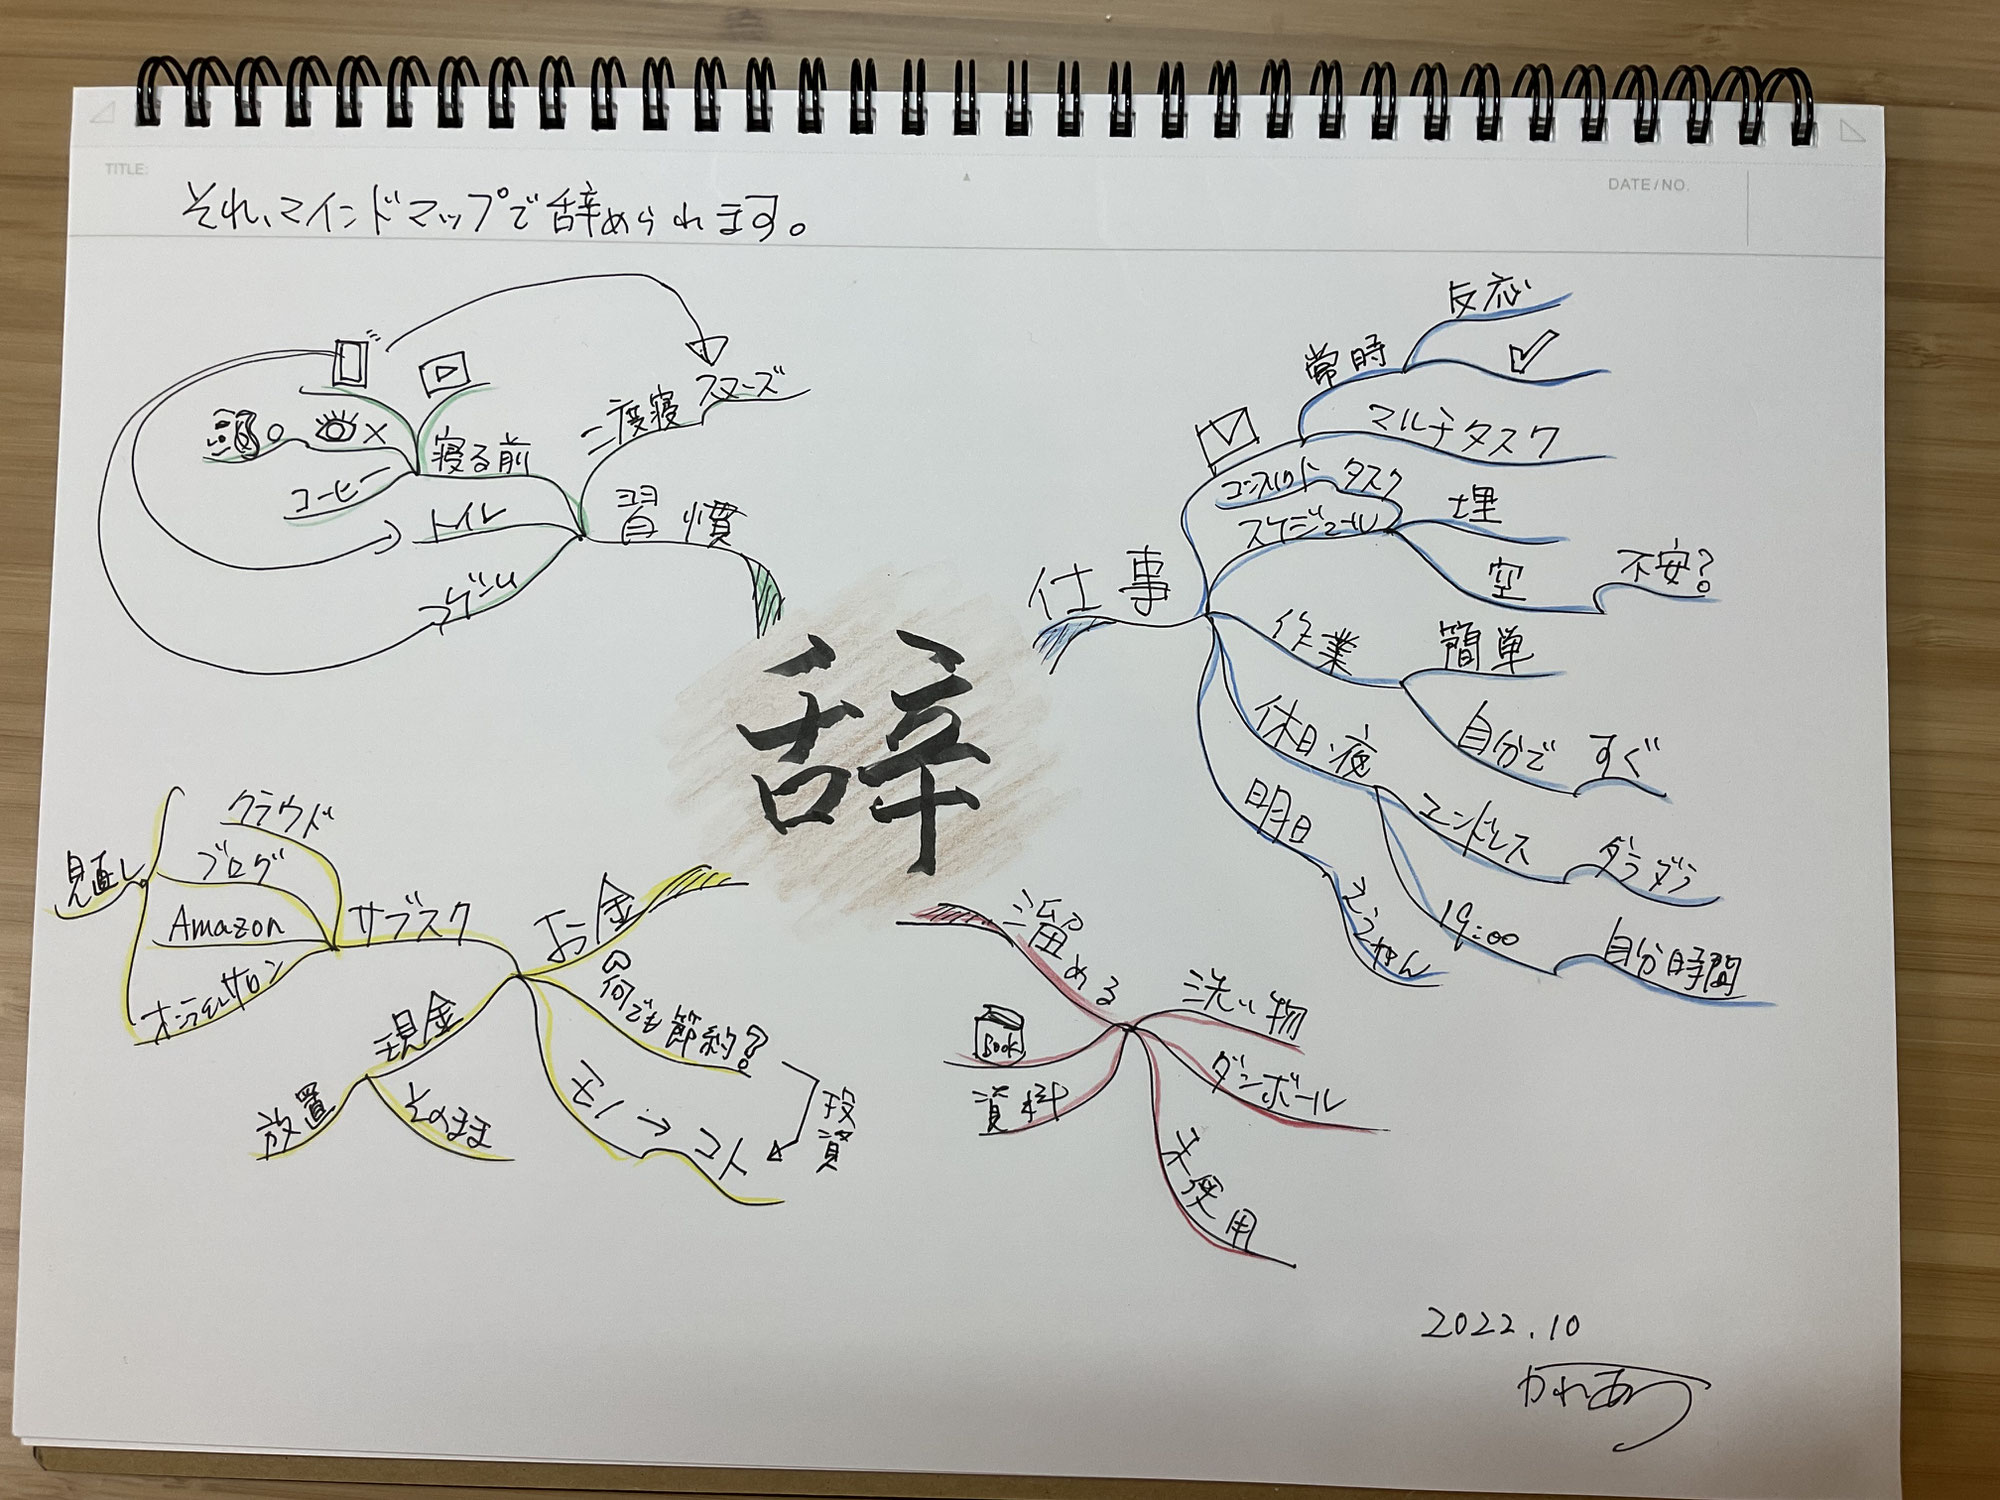 TITLE:
DATE/NO.
それ、マインドマップで辞められます。
辞
習慣
二度寝
スヌーズ
寝る前
頭
コーヒー
トイレ
仕事
常時
反応
マルチタスク
タスク
スケジュール
埋
空
不安?
作業
簡単
自分で
すぐ
休日・夜
エンドレス
ダラダラ
19:00
自分時間
明日
溜める
洗い物
ダンボール
未使用
資料
BOOK
お金
何でも節約?
投資
モノ→コト
現金
そのまま
放置
サブスク
クラウド
ブログ
Amazon
オンラインサロン
見直し
2022.10